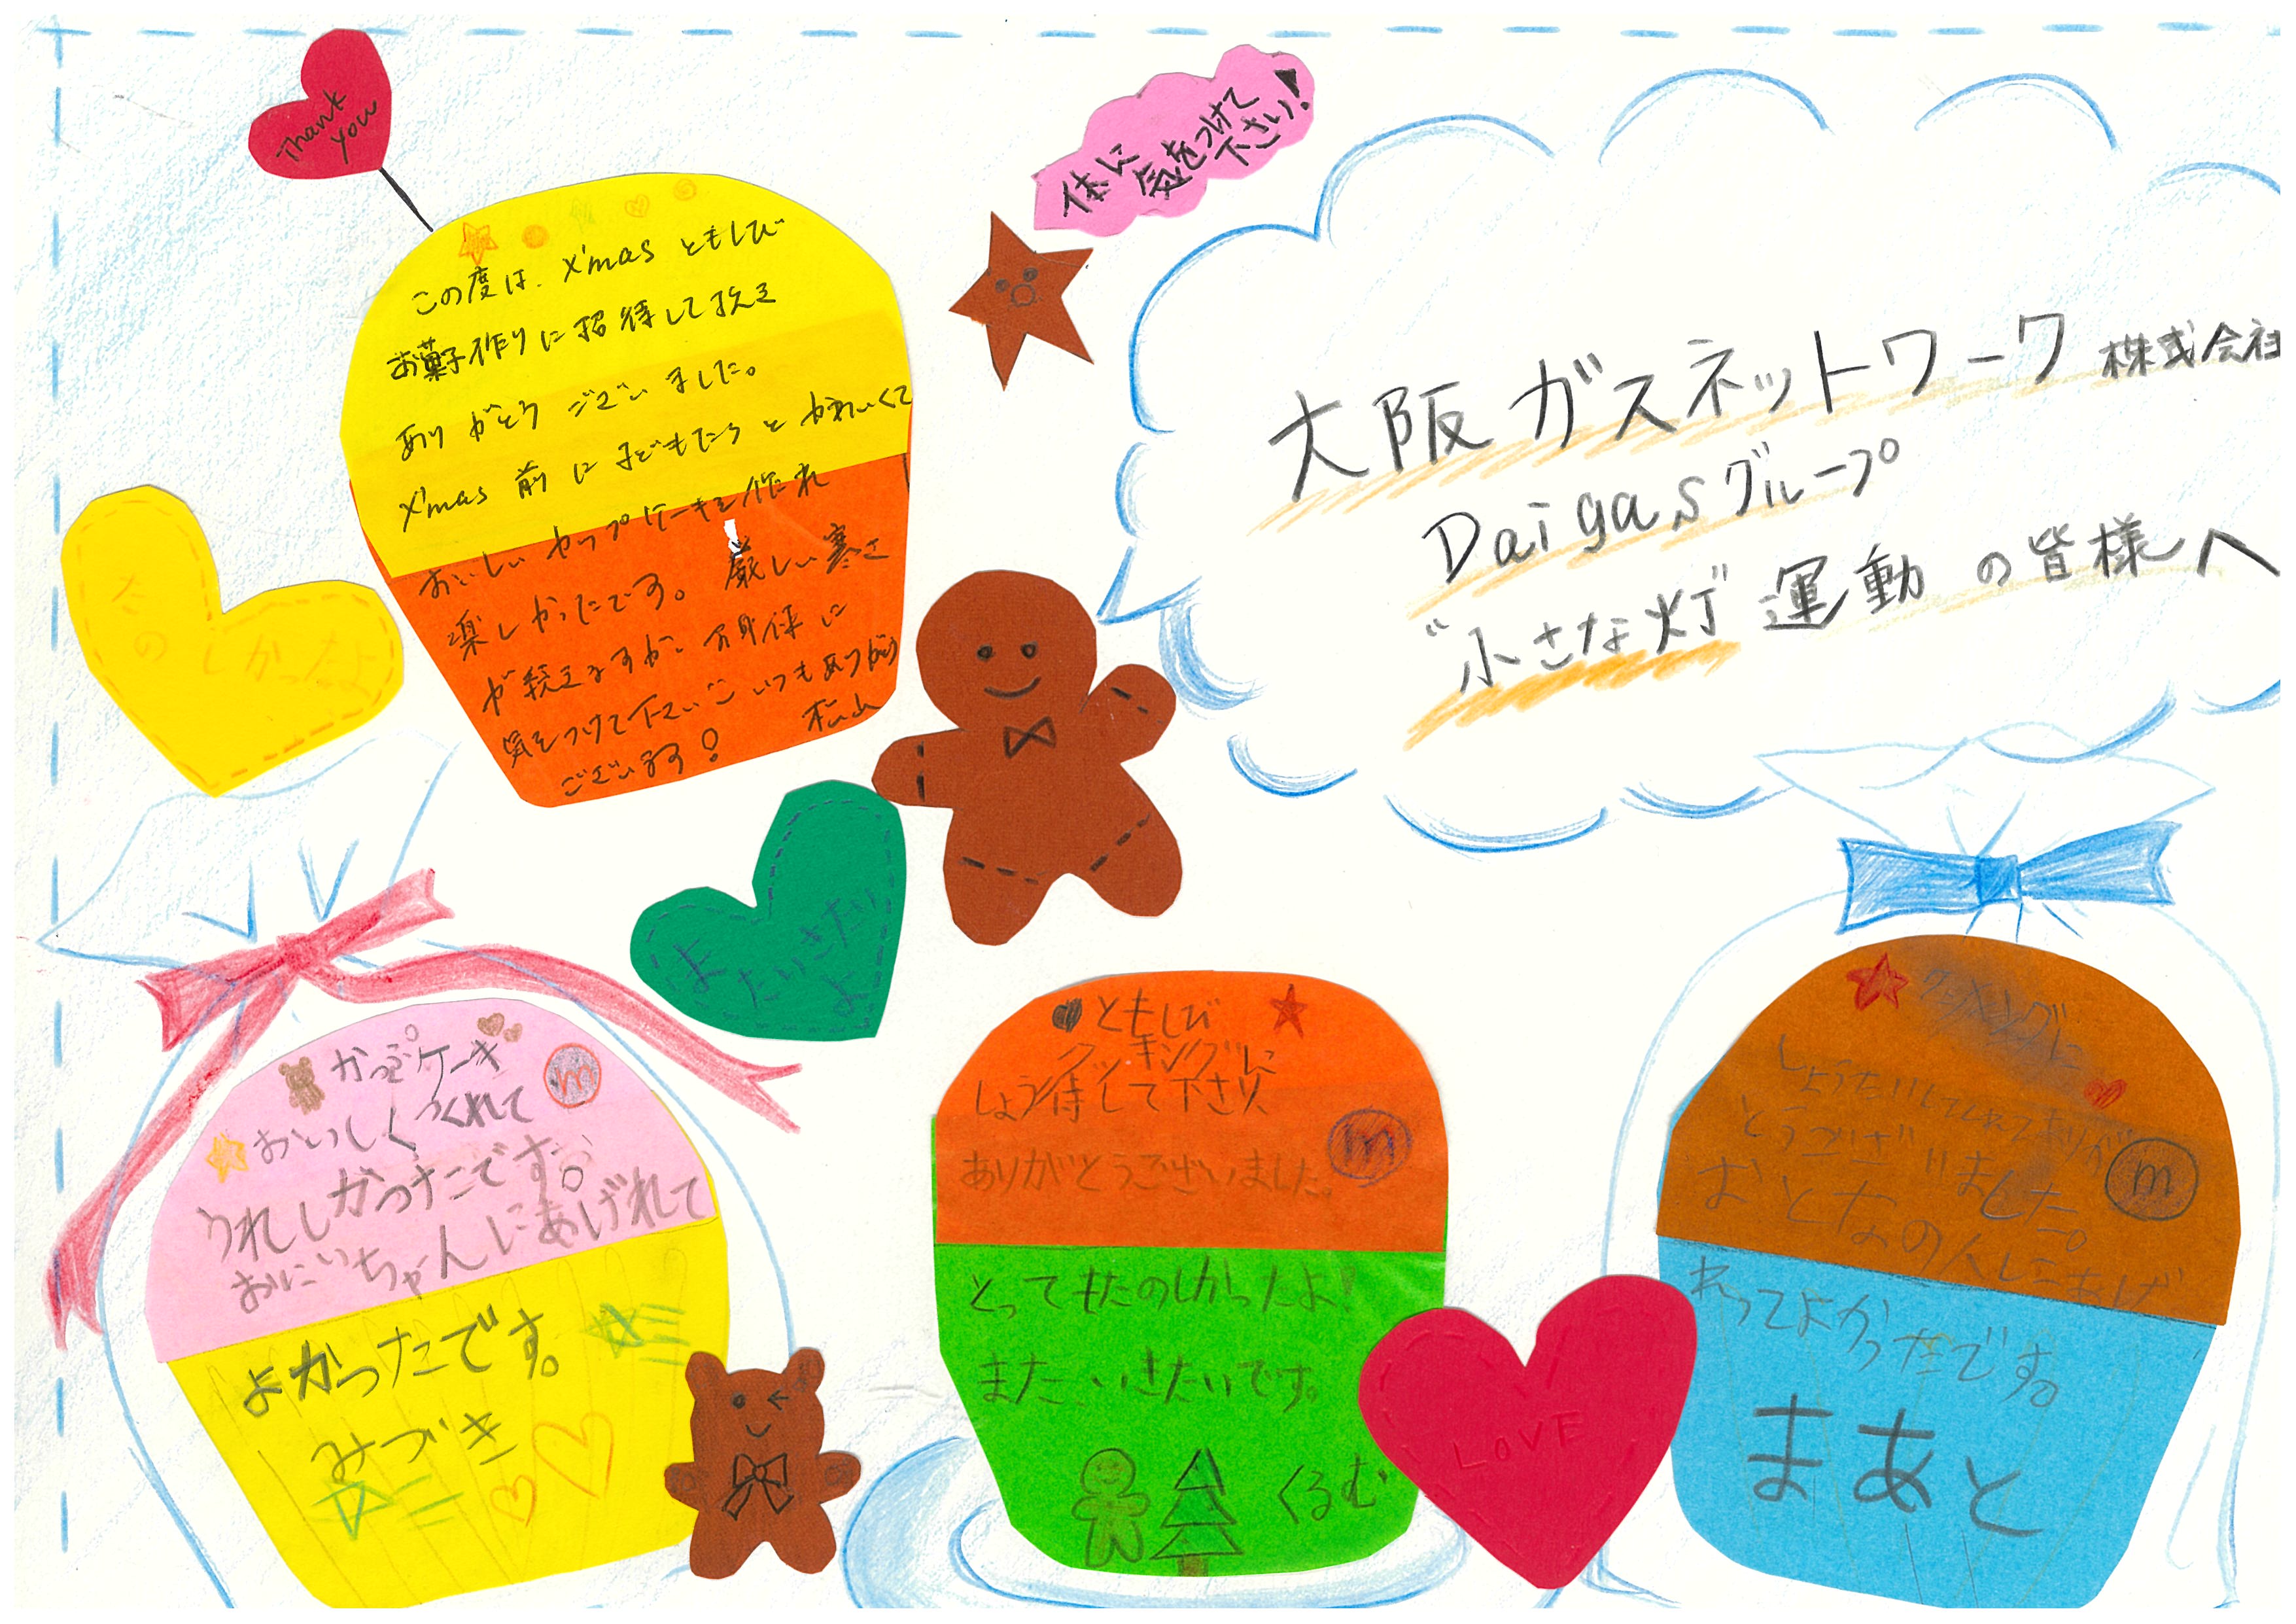 Thank
you
体に
気をつけて
下さい!
大阪ガスネットワーク 株式会社
Daigasグループ
"小さな灯"運動の皆様へ
この度は、X'mas ともしび
お菓子作りに招待して頂き
ありがとうございました。
X'mas 前に子どもたちとかわいくて
おいしいカップケーキを作れ
楽しかったです。厳しい寒さ
が続きますが、お身体に
気をつけて下さい。いつもありがとう
ございます! 松山
たのしかったよ
LOVE
かっぷケーキ
おいしくつくれて
うれしかったです。
おにいちゃんにあげれて
よかったです。
みづき
ともしび
クッキングに
しょう待して下さり、
ありがとうございました。
とってもたのしかったよ!
また、いきたいです。
くるむ
クッキングに
しょうたいしてくれてありが
とうございました。
おとなの人にあげ
れってよかったです。
まあと
m
m
m